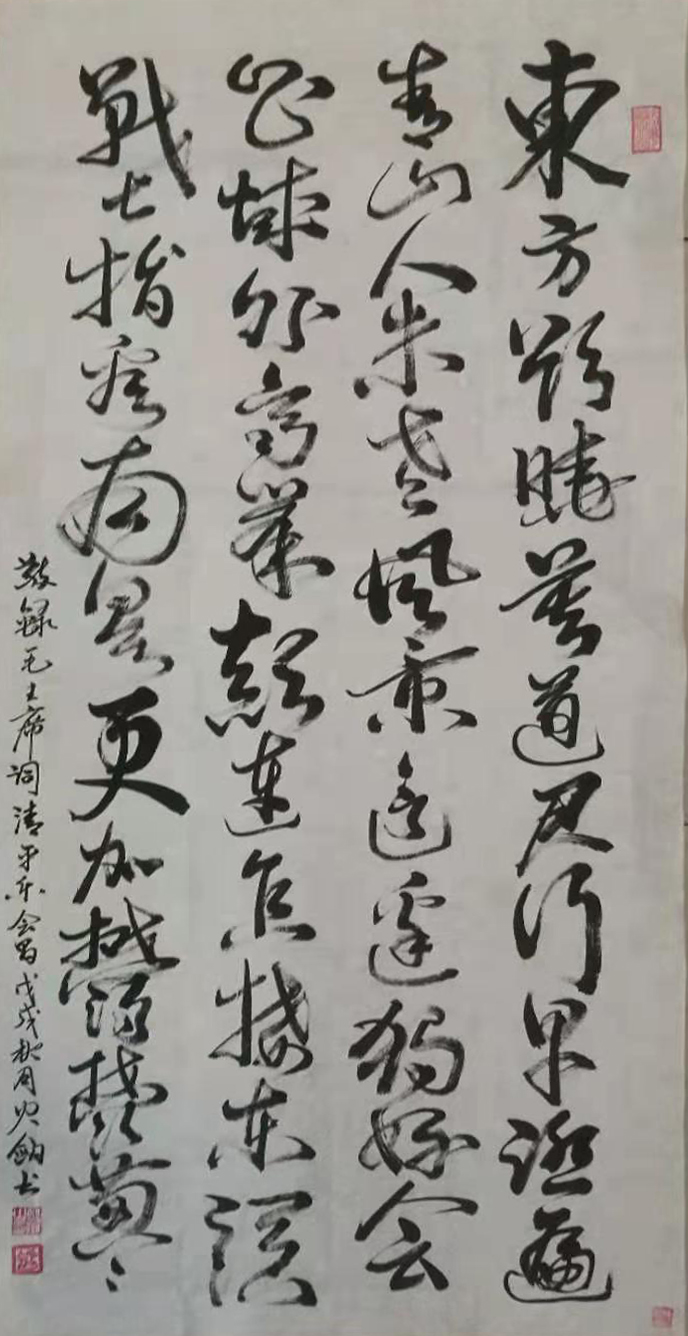 東方欲曉莫道君行早踏遍
青山人未老風景這邊獨好会
昌城外高峯顛連直接东溟
戰士指看南粤更加鬱鬱葱〻
敬録毛主席词清平乐会昌戊戌秋月书